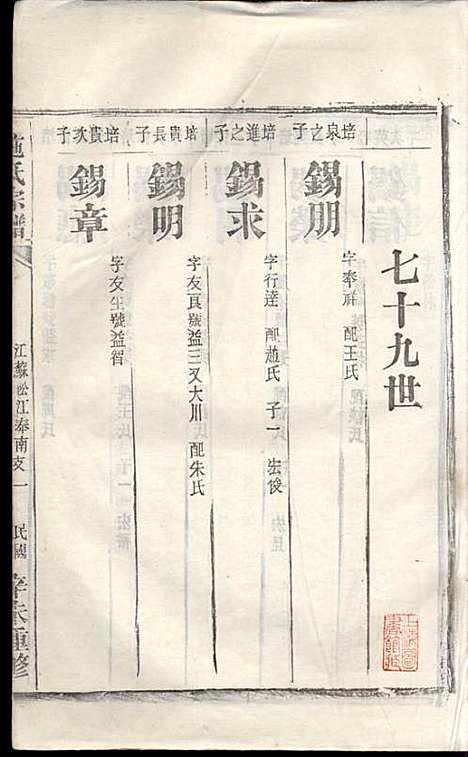 七十九世
培泉之子
錫朋
字奉祥 配王氏
培進之子
錫求
字行達 配趙氏 子一 宏俊
培貴長子
錫明
字友良號益三又大川 配朱氏
培貴次子
錫章
字友生號益智
施氏宗譜
江蘇松江奉南支一
民國
辛未重修
上海圖書館藏